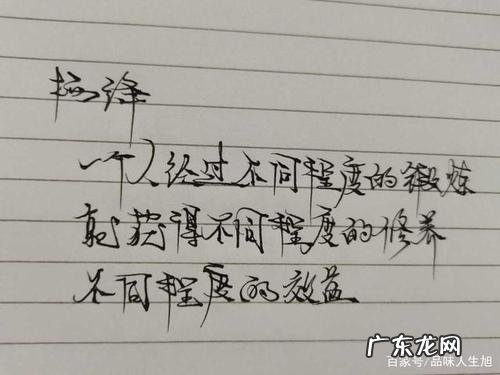 杨绛
一个人经过不同程度的锻炼
就获得不同程度的修养
不同程度的效益
广东龙网
百家号/品味人生旭